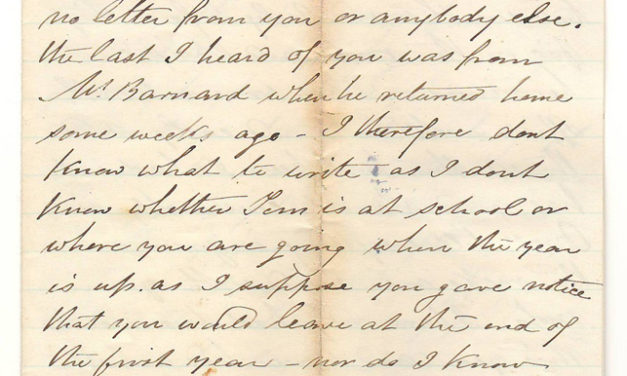 no letter from you or anybody else.
the last I heard of you was from
Mr Barnard when he returned home
some weeks ago – I therefore dont
know what to write as I dont
know whether Tom is at school or
where you are going when the year
is up. as I suppose you gave notice
that you would leave at the end of
the first year – nor do I know